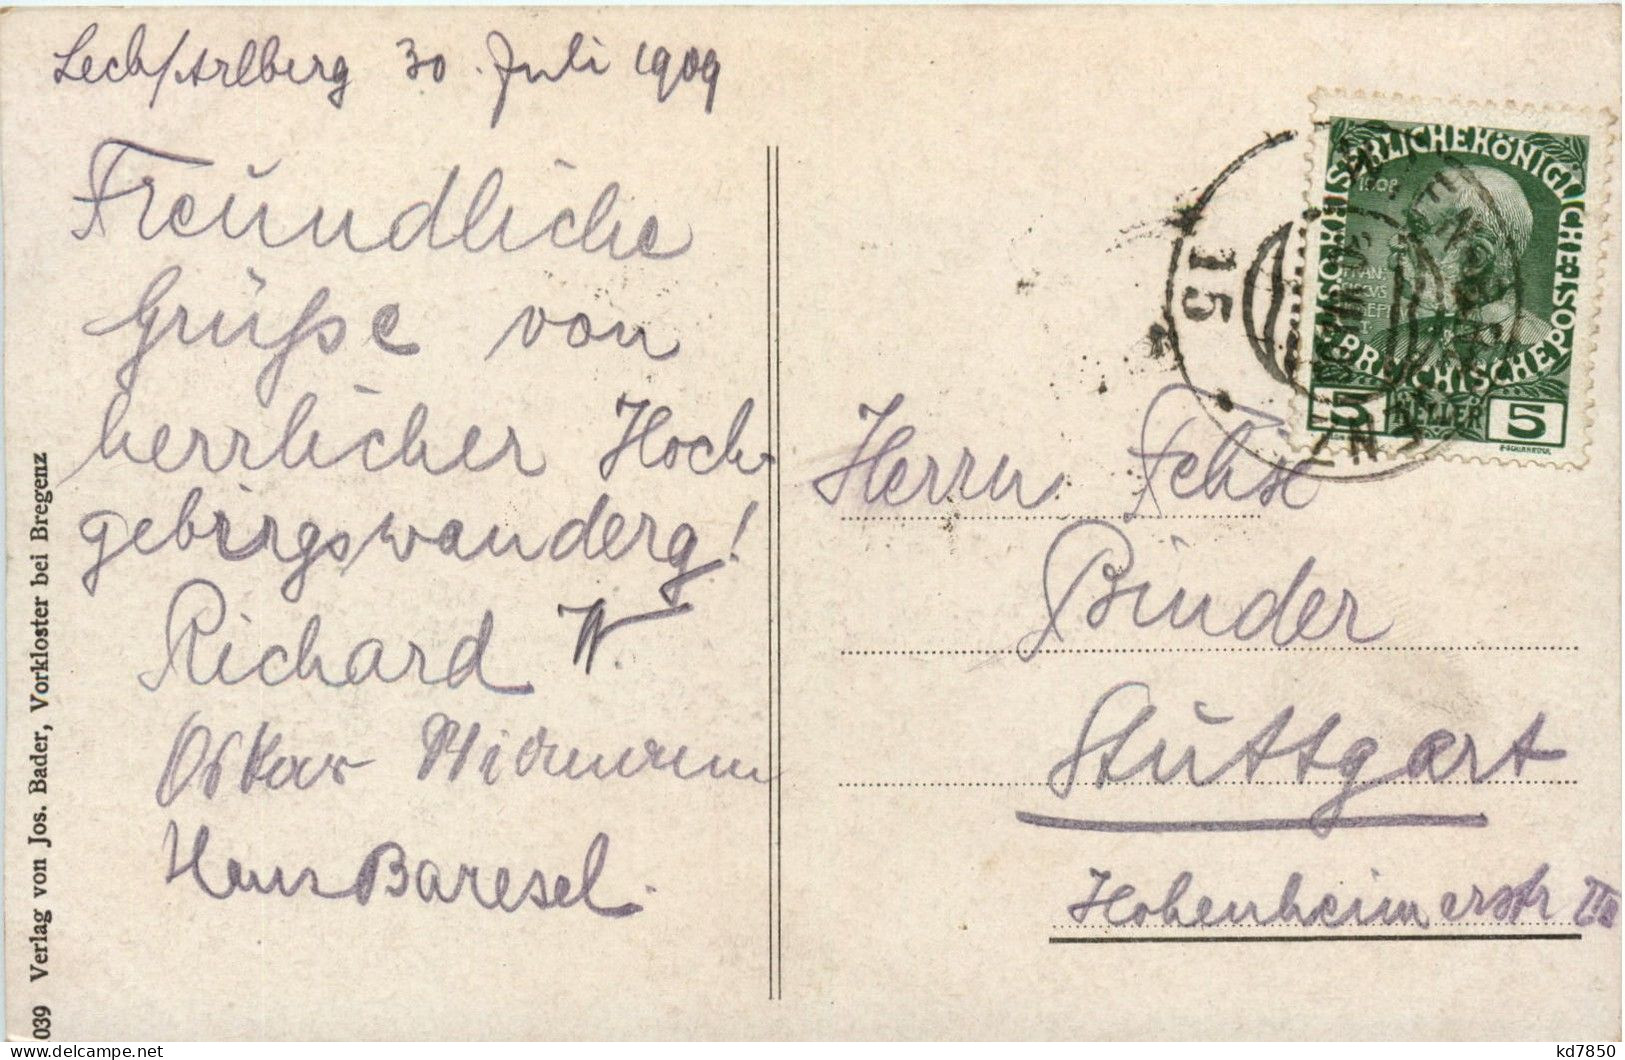 Lech/Arlberg 30. Juli 1909
Freundliche
Grüße von
herrlicher Hoch-
gebirgswanderg!
Richard W.
Oskar Widmann
Hans Baresel.
Herrn
Binder
Stuttgart
Hohenheimerstr
039 Verlag von Jos. Bader, Vorkloster bei Bregenz
KAISERLICHE KÖNIGLICHE ÖSTERREICHISCHE POST
1908
5 HELLER 5
15
kd7850